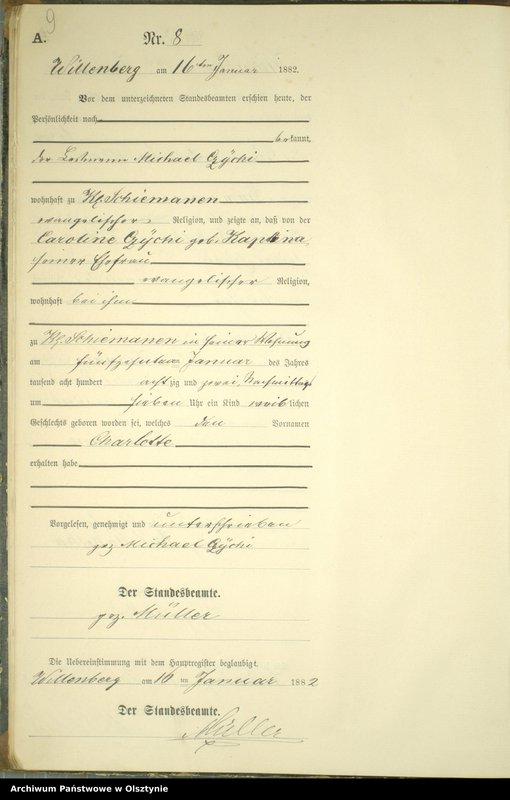 9
A.
Nr. 8
Willenberg am 16ten Januar 1882.
Vor dem unterzeichneten Standesbeamten erschien heute, der
Persönlichkeit nach
bekannt,
der Losmann Michael Czÿchi
wohnhaft zu Kl. Schiemanen
evangelischer Religion, und zeigte an, daß von der
Caroline Czÿchi geb.
seiner Ehefrau
evangelischer Religion,
wohnhaft bei ihm
zu Kl. Schiemanen in seiner Wohnung
am fünfzehnten Januar des Jahres
tausend acht hundert achtzig und zwei Nachmittags
um sieben Uhr ein Kind weiblichen
Geschlechts geboren worden sei, welches den Vornamen
Charlotte
erhalten habe
Vorgelesen, genehmigt und unterschrieben
gez Michael Czÿchi
Der Standesbeamte.
gez. Müller
Die Uebereinstimmung mit dem Hauptregister beglaubigt.
Willenberg am 16 ten Januar 1882
Der Standesbeamte.
Müller
Archiwum Państwowe w Olsztynie